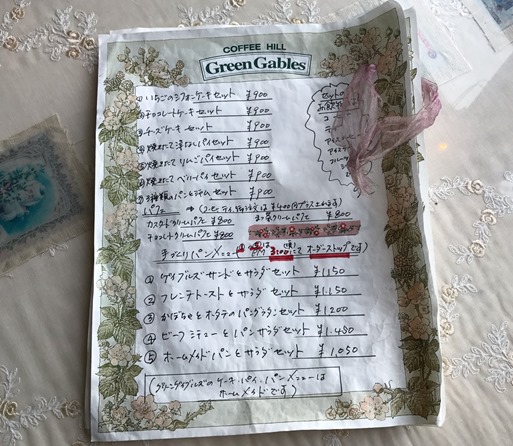 COFFEE HILL
Green Gables
① いちごのシフォンケーキセット ¥900
チョコレートケーキセット ¥900
③ チーズケーキセット ¥900
焼きたて洋なしパイセット ¥900
焼きたてりんごパイセット ¥900
焼きたてベリーパイセット ¥900
種類のパンとジャムセット ¥900
パフェ
カスタードクリームパフェ ¥800
チョコレートクリームパフェ ¥800
クリームパフェ ¥800
セットの
お飲物
手づくりパンメニュー
オーダーストップです)
① ゲイブルズサンドとサラダセット ¥1,150
② フレンチトーストとサラダセット ¥1,150
③ かぼちゃとホタテのパングラタンセット ¥1,200
④ ビーフシチューとパンサラダセット ¥1,450
⑤ ホームメイドパンとサラダセット ¥1,050
(グリーンゲイブルズのケーキ、パイ、パンメニューは
ホームメイドです)